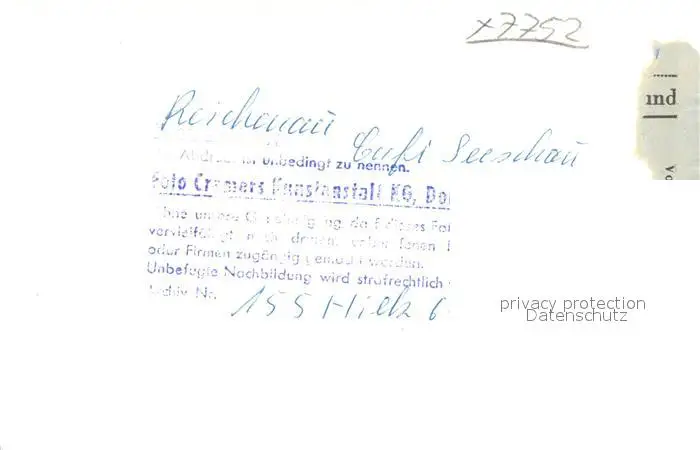 x7752
ınd
Reichenau Café Seeschau
Abdruck ist unbedingt zu nennen.
Foto Cramers Kunstanstalt KG, Do
Ohne unsere Genehmigung darf dieses Fot
vervielfältigt noch dritten
oder Firmen zugängig gemacht werden.
Unbefugte Nachbildung wird strafrechtlich
Archiv Nr. 155
privacy protection
Datenschutz